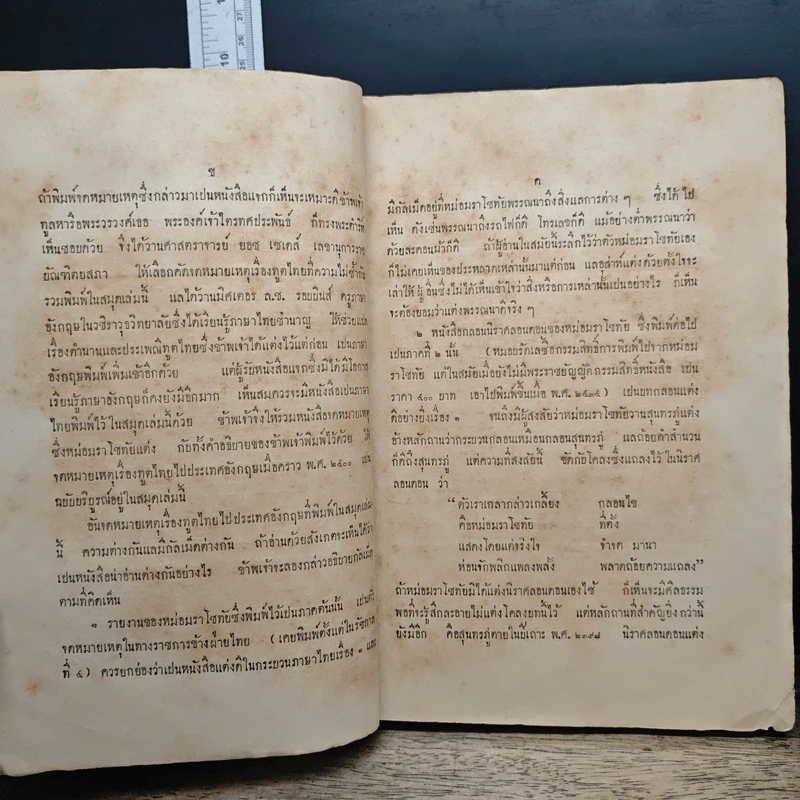 ข
ถ้าพิมพ์จดหมายเหตุซึ่งกล่าวมาเปนหนังสือแจกก็เห็นจะเหมาะดี ข้าพเจ้า
ทูลหารือพระวรวงศ์เธอ พระองค์เจ้าไตรทศประพันธ์ ก็ทรงพระดำริห์
เห็นชอบด้วย จึงได้วานศาสตราจารย์ ยอช เซเดส์ เลขานุการราช
บัณฑิตยสภา ให้เลือกคัดจดหมายเหตุเรื่องทูตไทยที่ความไม่ซ้ำกัน
รวมพิมพ์ในสมุดเล่มนี้ แลได้วานมิศเตอร ล.ซ. รอยบินส์ ครูภาษา
อังกฤษในวชิราวุธวิทยาลัยซึ่งได้เรียนรู้ภาษาไทยชำนาญ ให้ช่วยแปล
เรื่องตำนานและประเพณีทูตไทยซึ่งข้าพเจ้าได้แต่งไว้แต่ก่อน เปนภาษา
อังกฤษพิมพ์เพิ่มเข้าอีกด้วย แต่ผู้รับหนังสือแจกซึ่งมิได้มีโอกาส
เรียนรู้ภาษาอังกฤษก็คงยังมีอีกมาก เห็นสมควรจะมีหนังสือเปนภาษา
ไทยพิมพ์ไว้ในสมุดเล่มนี้ด้วย ข้าพเจ้าจึงให้รวมหนังสือจดหมายเหตุ
ซึ่งหม่อมราโชทัยแต่ง กับทั้งคำอธิบายของข้าพเจ้าพิมพ์ไว้ด้วย ให้
จดหมายเหตุเรื่องทูตไทยไปประเทศอังกฤษเมื่อคราว พ.ศ. ๒๔๐๐ เปน
ฉบับบริบูรณ์อยู่ในสมุดเล่มนี้
อันจดหมายเหตุเรื่องทูตไทยไปประเทศอังกฤษที่พิมพ์ในสมุดเล่ม
นี้ ความต่างกันแลมีกัลเม็ดต่างกัน ถ้าอ่านด้วยสังเกตจะเห็นได้ว่า
เปนหนังสือน่าอ่านต่างกันอย่างไร ข้าพเจ้าจะลองกล่าวอธิบายกัลเม็ด
ตามที่คิดเห็น
๑ รายงานของหม่อมราโชทัยซึ่งพิมพ์ไว้เปนภาคต้นนั้น เปนตัว
จดหมายเหตุในทางราชการข้างฝ่ายไทย (เคยพิมพ์ตั้งแต่ในรัชกาล
ที่ ๔) ควรยกย่องว่าเปนหนังสือแต่งดีในกระบวนภาษาไทยเรื่อง ๑ แล
ค
มีกัลเม็ดอยู่ที่หม่อมราโชทัยพรรณนาถึงสิ่งแลการต่าง ๆ ซึ่งได้ไป
เห็น ดังเช่นพรรณนาถึงรถไฟก็ดี โทรเลขก็ดี แม้อย่างต่ำพรรณนาว่า
ด้วยละคอนม้าก็ดี ถ้าผู้อ่านในสมัยนี้ระลึกไว้ว่าตัวหม่อมราโชทัยเอง
ก็ไม่เคยเห็นของประหลาดเหล่านั้นมาแต่ก่อน แลอุส่าห์แต่งด้วยตั้งใจจะ
เล่าให้ผู้อื่นซึ่งไม่ได้เห็นเข้าใจว่าสิ่งหรือการเหล่านั้นเปนอย่างไร ก็เห็น
จะต้องยอมว่าแต่งพรรณนาดีจริงๆ
๒ หนังสือกลอนนิราศลอนดอนของหม่อมราโชทัย ซึ่งพิมพ์ต่อไป
เปนภาคที่ ๒ นั้น (หมอบรัดเลซื้อกรรมสิทธิ์การพิมพ์ไปจากหม่อม
ราโชทัย แต่ในสมัยเมื่อยังไม่มีพระราชบัญญัติกรรมสิทธิ์หนังสือ เปน
ราคา ๔๐๐ บาท เอาไปพิมพ์ขึ้นเมื่อ พ.ศ. ๒๔๐๔) เปนบทกลอนแต่ง
ดีอย่างยิ่งเรื่อง ๑ จนถึงมีผู้สงสัยว่าหม่อมราโชทัยวานสุนทรภู่แต่ง
อ้างหลักฐานว่ากระบวนกลอนเหมือนกลอนสุนทรภู่ แลถ้อยคำสำนวน
ก็ดีถึงสุนทรภู่ แต่ความที่สงสัยนี้ ขัดกับโคลงซึ่งแถลงไว้ในนิราศ
ลอนดอน ว่า
“ตัวเราเกลากล่าวเกลี้ยง กลอนไข
คือหม่อมราโชทัย ที่ตั้ง
แสดงโดยแต่จริงใจ จำจด มานา
ห่อนจักพลิกแพลงพลั้ง พลาดถ้อยความแถลง”
ถ้าหม่อมราโชทัยมิได้แต่งนิราศลอนดอนเองไซ้ ก็เห็นจะมีศีลธรรม
พอที่จะรู้สึกละอายไม่แต่งโคลงบทนี้ไว้ แต่หลักฐานที่สำคัญยิ่งกว่านี้
ยังมีอีก คือสุนทรภู่ตายในปีเถาะ พ.ศ. ๒๓๙๘ นิราศลอนดอนแต่ง